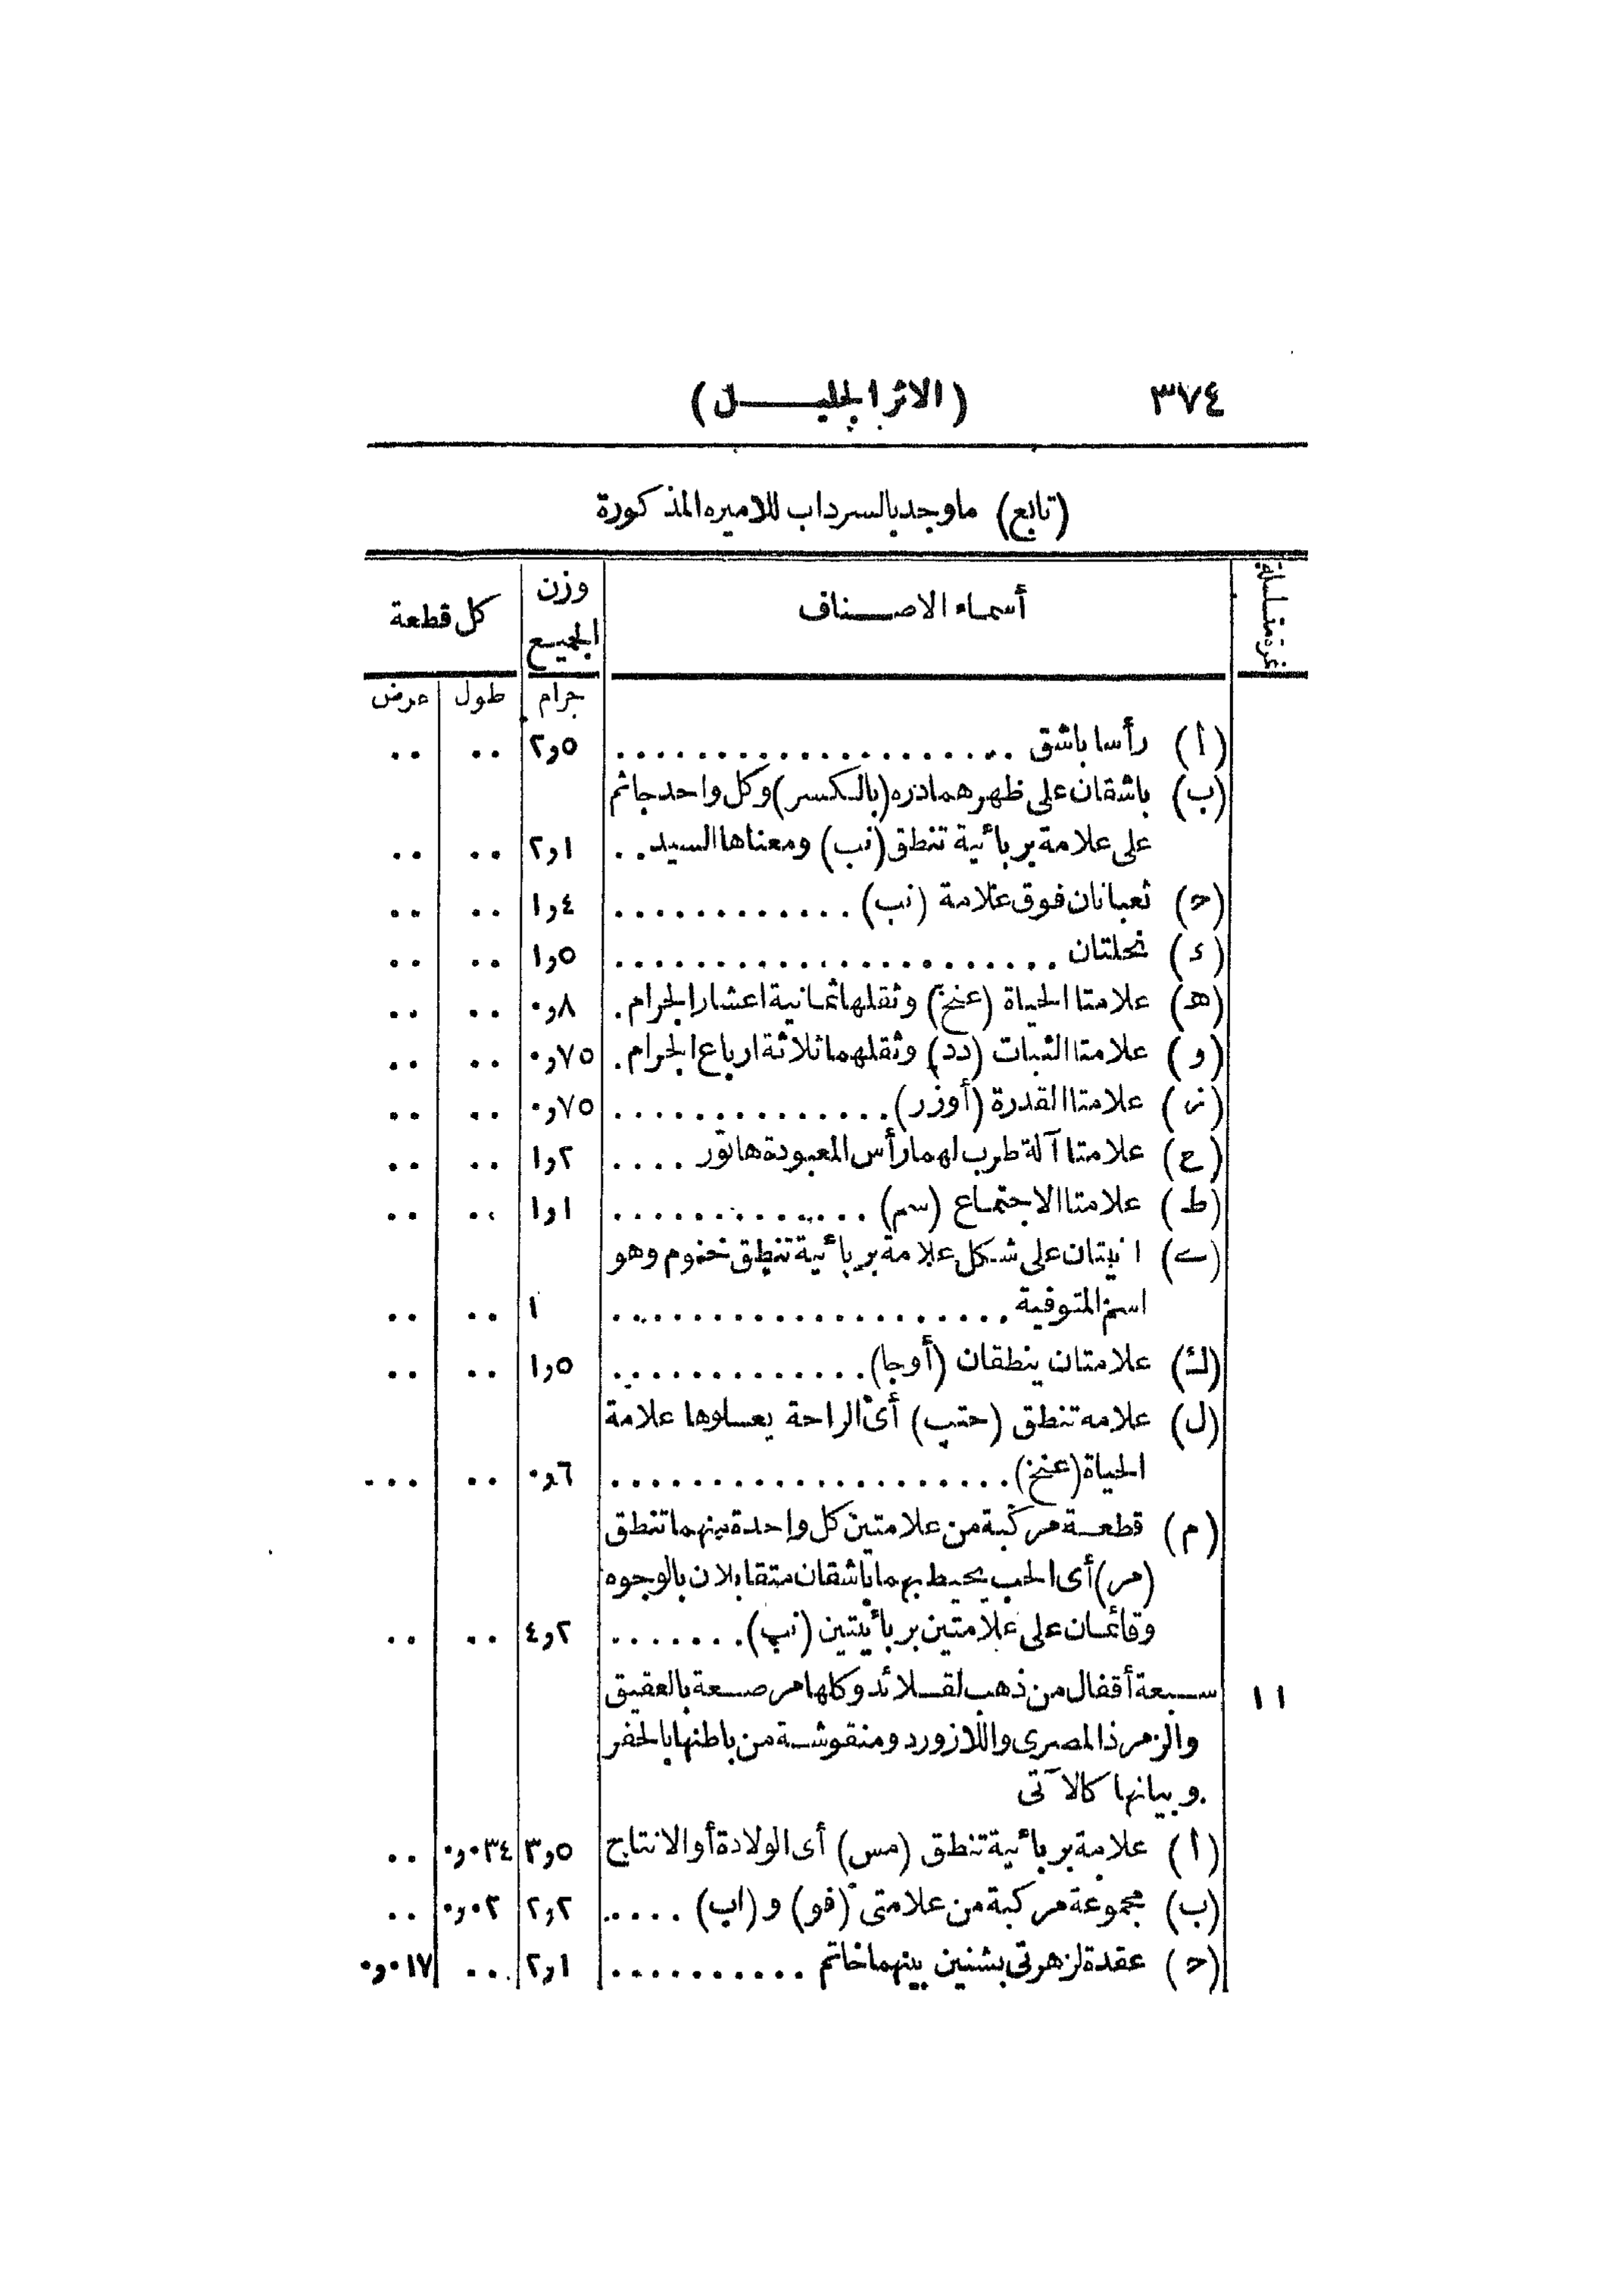 ٣٧٤ (الاثر الجليــــل)
(تابع) ما وجد بالسرداب للاميره المذكورة
نمرة متسلسلة أسماء الاصــناف وزن الجميع كل قطعة
جرام طول عرض
(أ) رأسا باشق .................... ٢,٥ .. ..
(ب) باشقان على ظهرهما دره (بالكسر) وكل واحد جاثم
على علامة بربائية تنطق (نب) ومعناها السيد .. ٢,١ .. ..
(ح) ثعبانان فوق علامة (نب) ............ ١,٤ .. ..
(ء) نحلتان ...................... ١,٥ .. ..
(هـ) علامتا الحياة (عنخ) وثقلها ثمانية اعشار الجرام . ٠,٨ .. ..
(و) علامتا الثبات (دد) وثقلهما ثلاثة ارباع الجرام . ٠,٧٥ .. ..
(ز) علامتا القدرة (أوزر) .............. ٠,٧٥ .. ..
(ع) علامتا آلة طرب لهما رأس المعبودة هاتور .... ١,٢ .. ..
(ط) علامتا الاجتماع (سم) ............. ١,١ .. ..
(ے) انيتان على شكل علامة بربائية تنطق خنوم وهو
اسم المتوفية .................... ١ .. ..
(ك) علامتان ينطقان (أوجا) ............. ١,٥ .. ..
(ل) علامه تنطق (حتب) أى الراحة يعسلوها علامة
الحياة (عنخ) .................... ٠,٦ .. ...
(م) قطعــة مركبة من علامتين كل واحدة منهما تنطق
(مر) أى الحب يحيط بهما باشقان متقابلان بالوجوه
وقائمان على علامتين بربائيتين (نب) ....... ٤,٢ .. ..
١١ سـبعة أقفال من ذهب لقــلائد وكلها مرصـعة بالعقيق
والزمرذ المصرى واللازورد ومنقوشــة من باطنها بالحفر
وبيانها كالآتى
(أ) علامة بربائية تنطق (مس) أى الولادة أو الانتاج ٣,٥ ٠,٠٣٤ ..
(ب) مجموعة مركبة من علامتى (فو) و (اب) ..... ٢,٢ ٠,٠٢ ..
(ح) عقدة لزهرتى بشنين بينهما خاتم .......... ٢,١ ... ٠,٠١٧